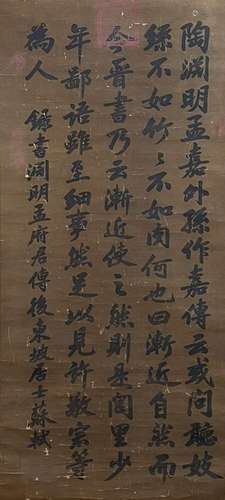 陶淵明孟嘉外孫作嘉傳云或問聽妓
絲不如竹竹不如肉何也曰漸近自然而
今晉書乃云漸近使之然則是閭里少
年鄙語雖至細事然足以見許敬宗等
為人
錄書淵明孟府君傳後東坡居士蘇軾